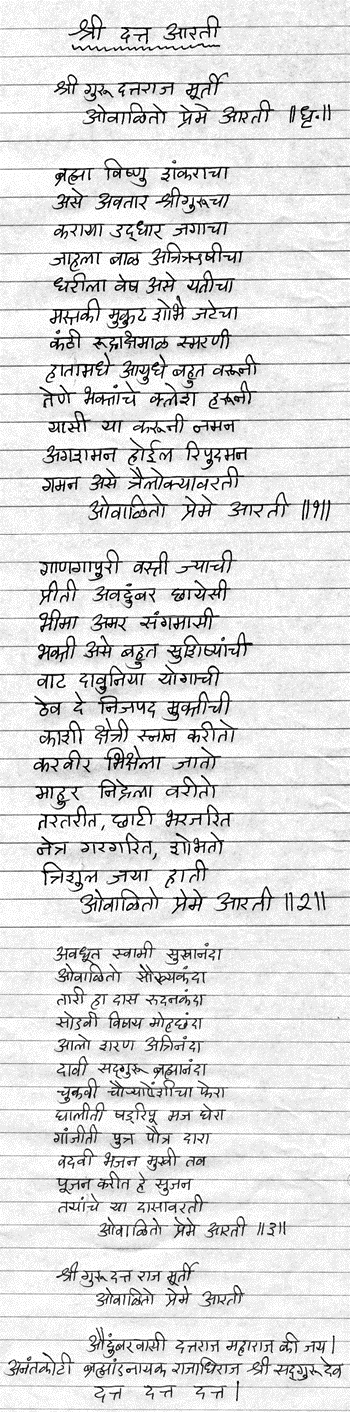 श्री दत्त आरती
श्री गुरू दत्तराज मूर्ती
ओवाळितो प्रेमे आरती ॥धृ.॥
ब्रह्मा विष्णु शंकराचा
असे अवतार श्रीगुरूचा
कराया उद्धार जगाचा
जाहला बाळ अत्रिऋषीचा
धरीला वेष असे यतीचा
मस्तकी मुकुट शोभे जटेचा
कंठी रूद्राक्षमाळ स्मरणी
हातामधे आयुधे बहुत वरूनी
तेणे भक्तांचे क्लेश हरूनी
यासी या करूनी नमन
अगशमन होईल रिपुदमन
गमन असे त्रैलोक्यावरती
ओवाळितो प्रेमे आरती ॥१॥
गाणगापुरी वस्ती ज्याची
प्रीती अवदुंबर छायेसी
भीमा अमर संगमासी
भक्ती असे बहुत सुशिष्यांची
वाट दावुनिया योगाची
ठेव दे निजपद मुक्तीची
काशी क्षेत्री स्नान करीतो
करवीर भिक्षेला जातो
माहुर निद्रेला वरीतो
तरतरीत, छाटी भरजरित
नेत्र गरगरित, शोभतो
त्रिशुल जया हाती
ओवाळितो प्रेमे आरती ॥२॥
अवधूत स्वामी सुखानंदा
ओवाळितो सौख्यकंदा
तारी हा दास रुदनकंदा
सोडवी विषय मोहछंदा
आलो शरण अत्रिनंदा
दावी सद्गुरू ब्रह्मानंदा
चुकवी चौऱ्याऐंशीचा फेरा
घालीती षड्रिपू मज घेरा
गांजीती पुत्र पौत्र दारा
वदवी भजन मुखी तव
पूजन करीत हे सुजन
तयांचे या दासावरती
ओवाळितो प्रेमे आरती ॥३॥
श्री गुरू दत्त राज मूर्ती
ओवाळितो प्रेमे आरती
औदुंबरवासी दत्तराज महाराज की जय।
अनंतकोटी ब्रह्मांडनायक राजाधिराज श्री सद्गुरू देव
दत्त दत्त दत्त।